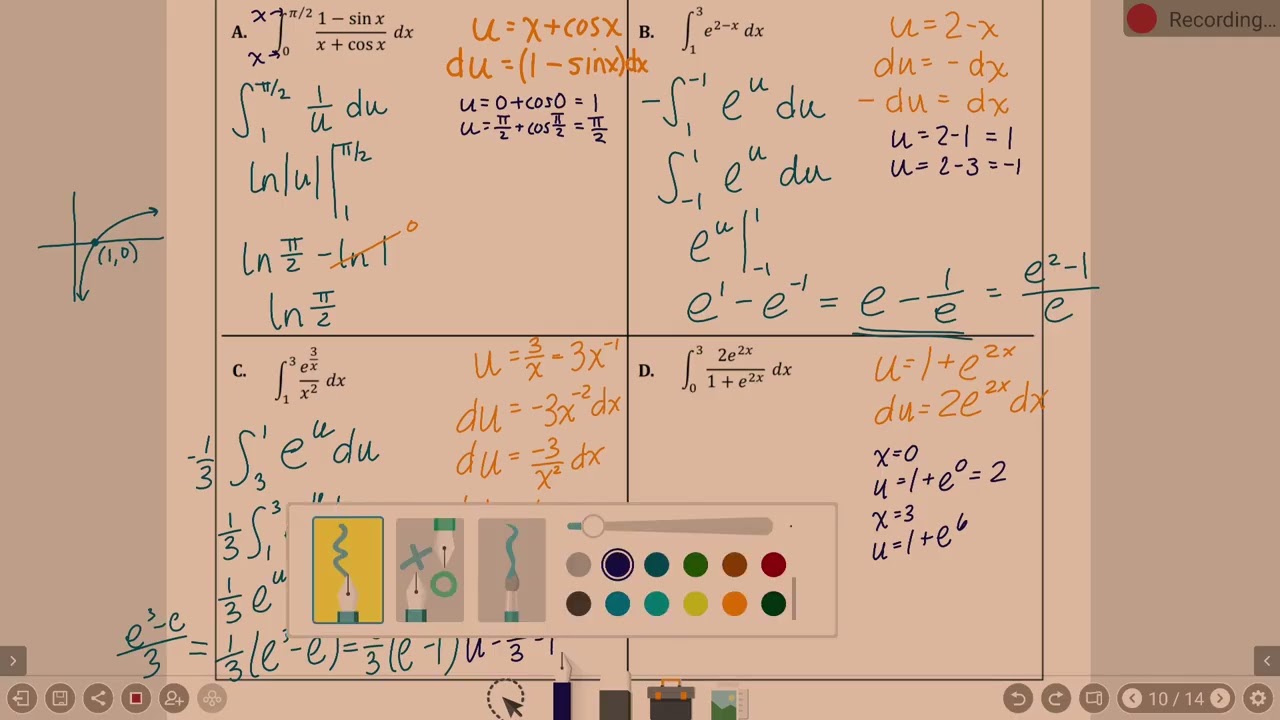 Recording...
A. x→ ∫₀^π/2 (1 − sin x)/(x + cos x) dx
x→
u = x + cosx
du = (1 − sinx)dx
u = 0 + cos0 = 1
u = π/2 + cos π/2 = π/2
∫₁^π/2 1/u du
ln|u| |₁^π/2
ln π/2 − ln 1 0
ln π/2
(1,0)
B. ∫₁³ e^(2−x) dx
u = 2-x
du = - dx
- du = dx
u = 2-1 = 1
u = 2-3 = -1
-∫₁^-1 e^u du
∫₋₁^1 e^u du
e^u |₋₁^1
e^1 - e^-1 = e - 1/e = (e²-1)/e
C. ∫₁³ e^(3/x)/x² dx
u = 3/x = 3x^-1
du = -3x^-2 dx
du = -3/x² dx
-1/3 ∫₃^1 e^u du
1/3 ∫₁^3
1/3 e^u
(e³-e)/3 = 1/3(e³-e) = /3(e - 1)
D. ∫₀³ 2e^(2x)/(1 + e^(2x)) dx
u = 1 + e^2x
du = 2e^2x dx
x=0
u = 1 + e^0 = 2
x=3
u = 1 + e^6
10 / 14